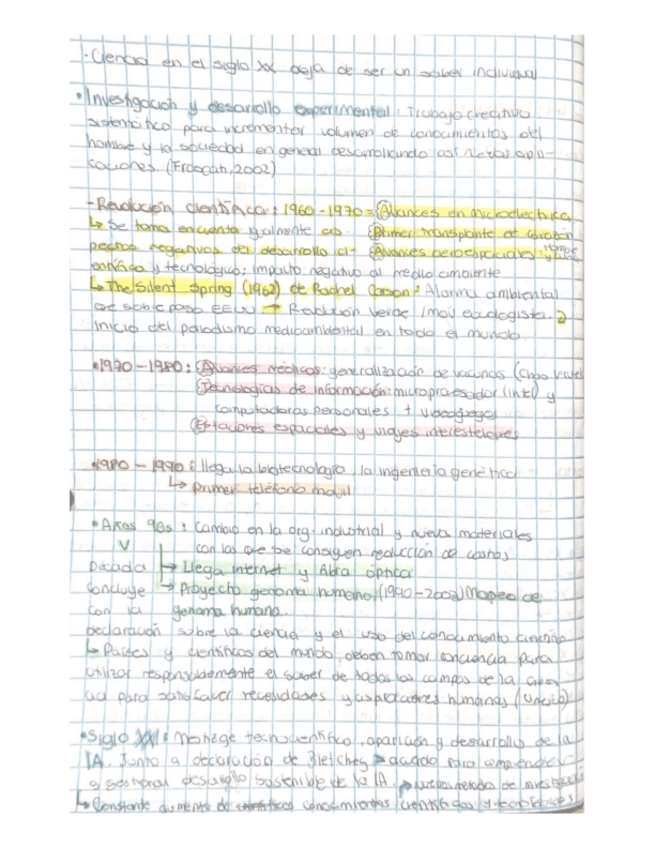 · Ciencia en el siglo XX deja de ser un saber individual
• Investigación y desarrollo experimental: Trabajo creativo
sistemático para incrementar volumen de conocimientos del
hombre y la sociedad en general desarrollando así nuevas apli-
caciones. (Frascati, 2002)
- Revolución científica: 1960 - 1970 = Avances en microeléctrica
↳ Se toma encuenta igualmente as- Primer transplante de corazón
pectos negativos del desarrollo ci- Avances aeroespaciales: y luna hombre
entífico y tecnológico: impacto negativo al medio ambiente
↳ The Silent Spring (1962) de Rachel Carson: Alarma ambiental
EEUU → Revolución verde /mov. ecologista. 2
inicio del periodismo medioambiental en todo el mundo
• 1970 - 1980: Avances médicos: generalización de vacunas
Tecnologías de información: microprocesador (intel) y
computadoras personales + videojuegos
Estaciones espaciales y viajes interestelares
• 1980 - 1990: llega la biotecnología, la ingeniería genética
↳ Primer teléfono movil
• Años 90s: Cambio en la org. industrial y nuevos materiales
con los que se consiguen reducción de costos
Década → Llega internet y fibra óptica
concluye → Proyecto genoma humano (1990-2003) Mapeo de
con la genoma humano.
declaración sobre la ciencia y el uso del conocimiento científico
↳ Países y científicos del mundo, deben tomar conciencia para
utilizar responsablemente el saber de todos los campos de la cien
cia para satisfacer necesidades y aspiraciones humanas (Unesco)
• Siglo XXI: Mestizaje tecnocientífico, aparición y desarrollo de la
IA. Junto a declaración de Bletchley → acuerdo para comprender
y gestionar desarrollo sostenible de la IA.
↳ Constante aumento de conocimientos científicos y tecnológicos